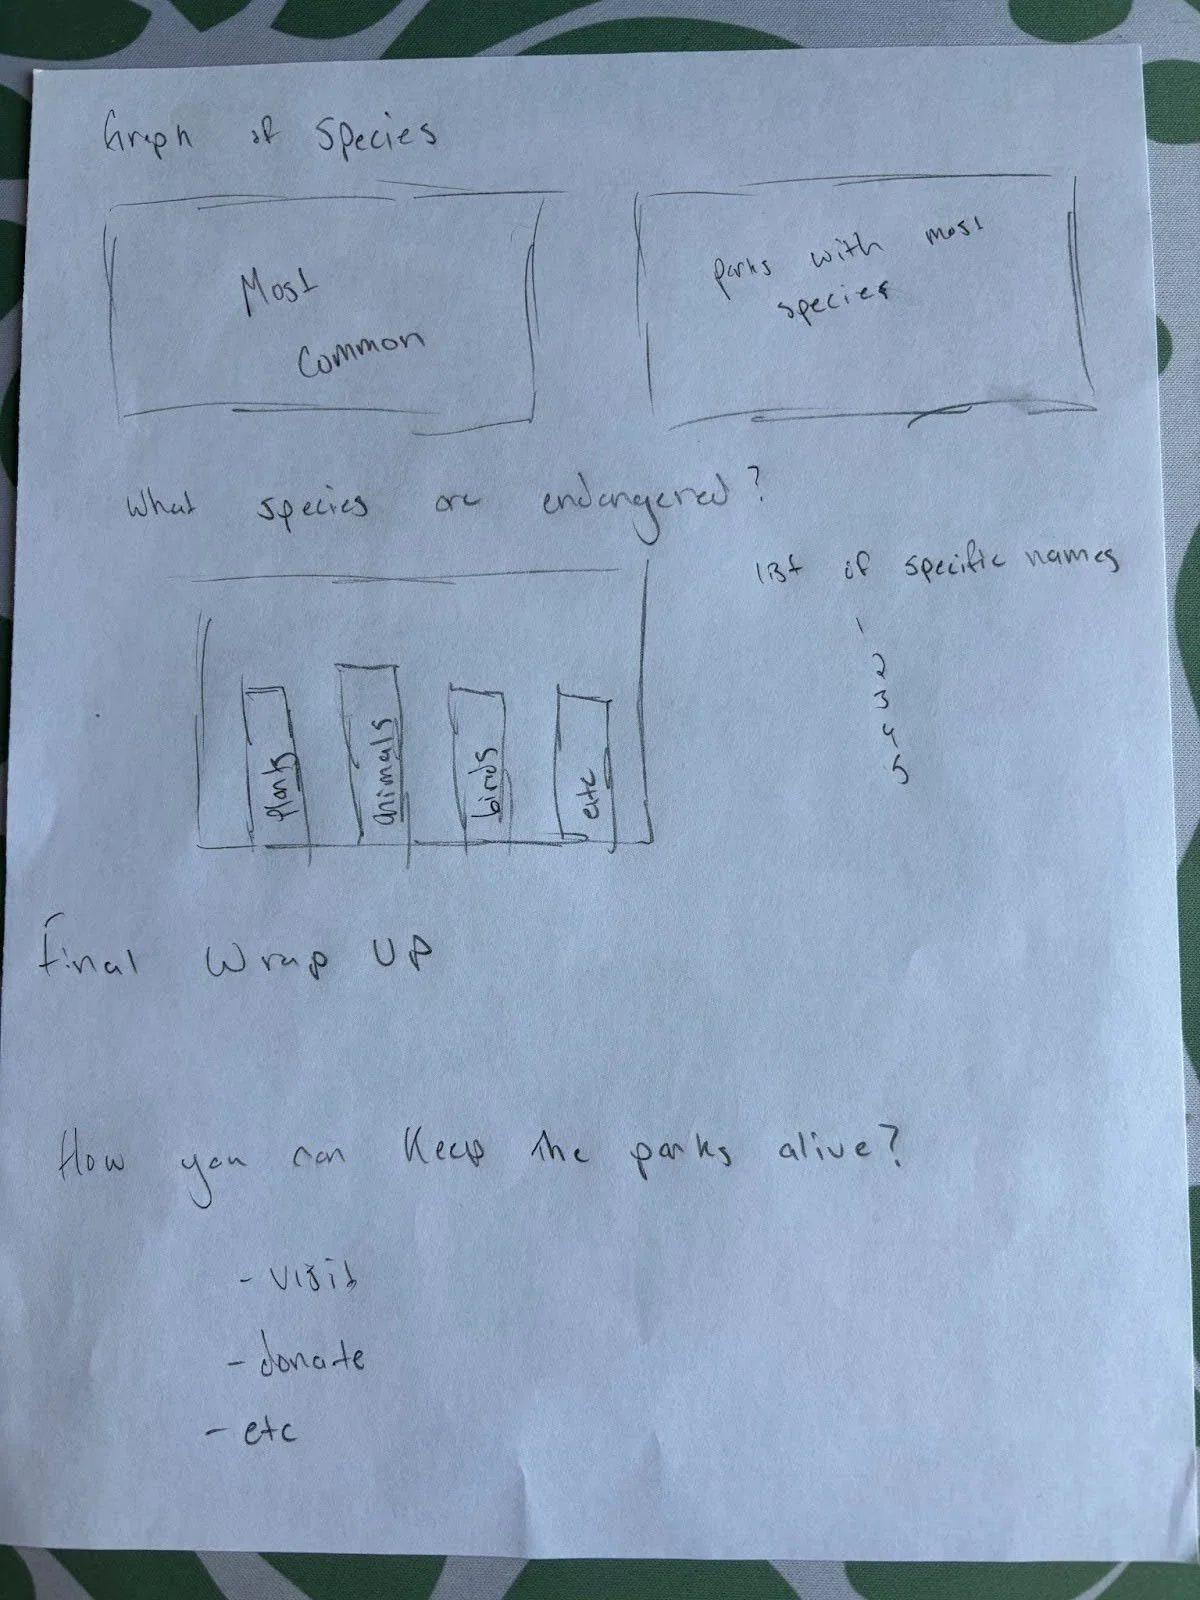 Graph of Species
Most
Common
parks with most
species
What species are endangered?
list of specific names
1
2
3
4
5
plants
animals
birds
etc
Final Wrap Up
How you can Keep the parks alive?
- visit
- donate
- etc